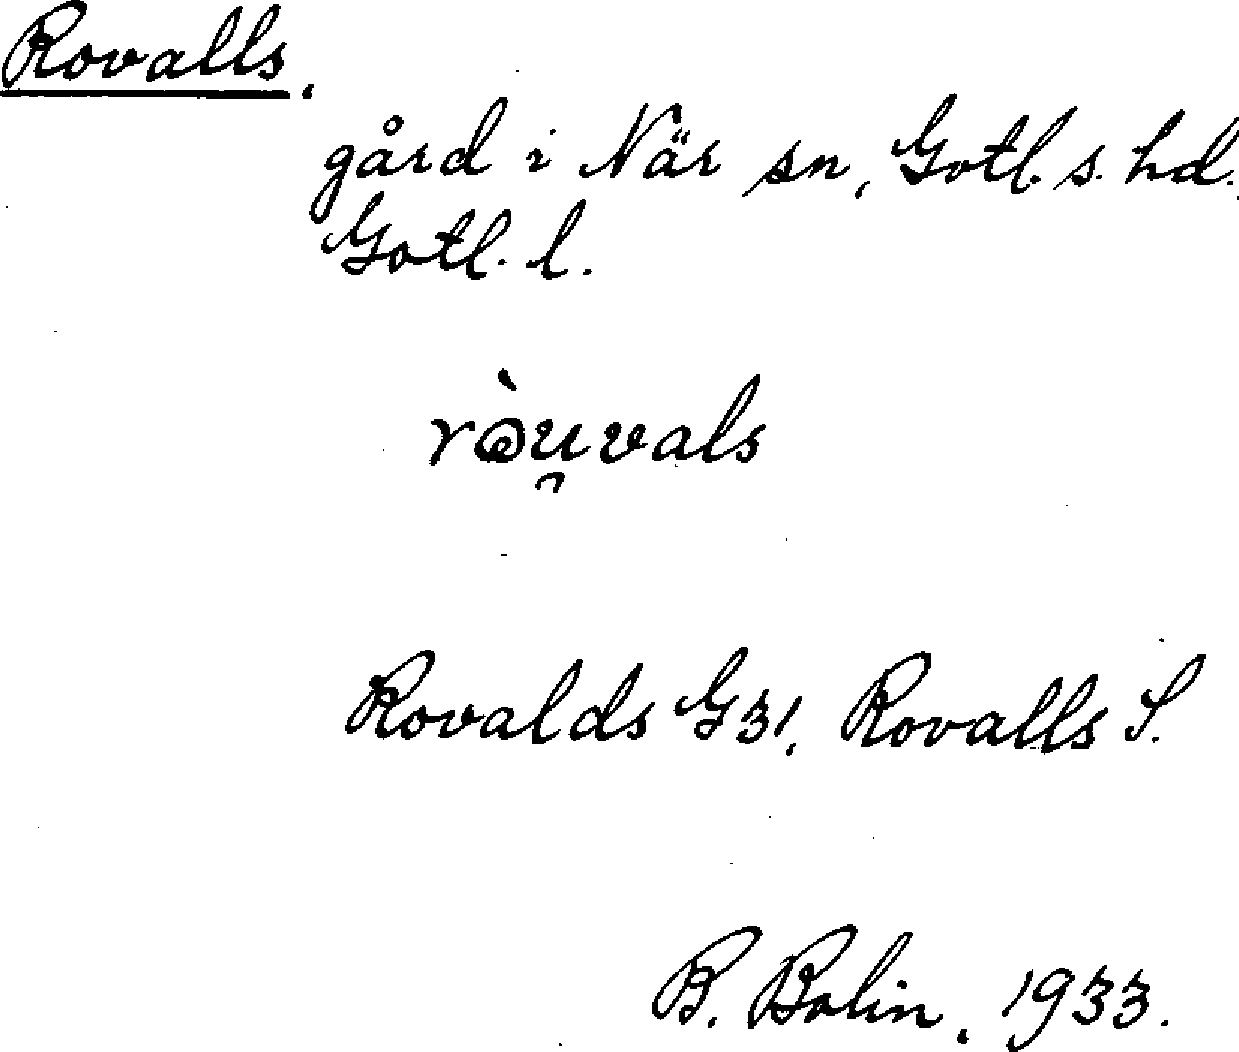 Rovalls.
gård i När sn, Gotl. s. hd.
Gotl. l.
rò̯u̯vals
Rovalds G31, Rovalls S.
B. Bolin. 1933.